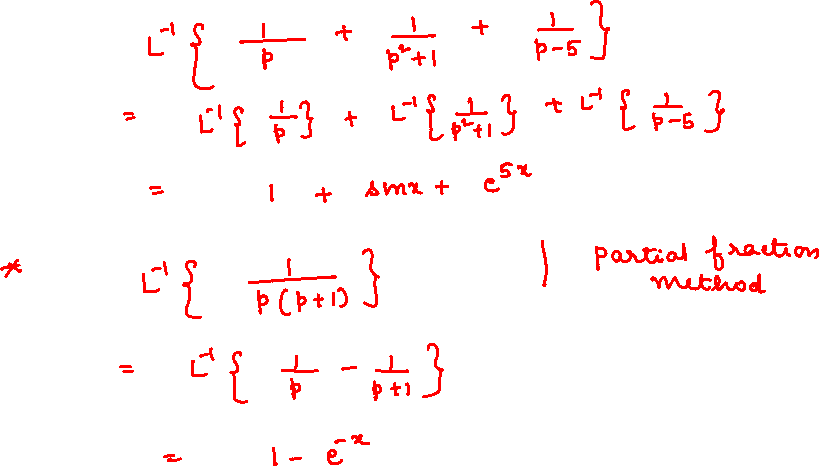 L⁻¹{ 1/p + 1/(p²+1) + 1/(p-5) }
= L⁻¹{ 1/p } + L⁻¹{ 1/(p²+1) } + L⁻¹{ 1/(p-5) }
= 1 + sinx + e^{5x}
* L⁻¹{ 1/(p(p+1)) } | Partial fraction method
= L⁻¹{ 1/p - 1/(p+1) }
= 1 - e^{-x}